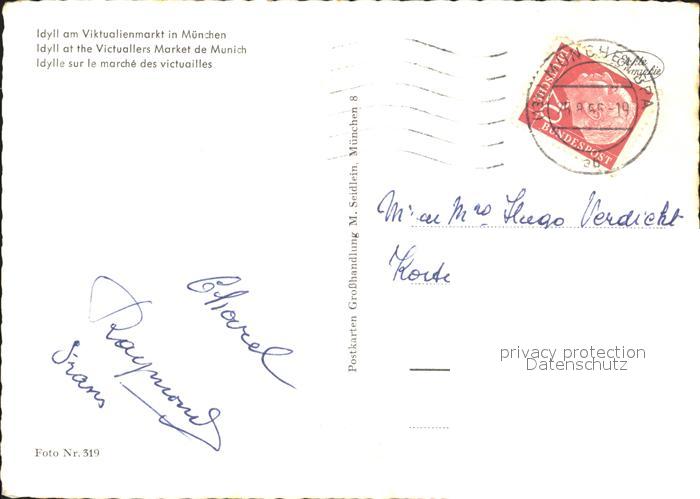 Idyll am Viktualienmarkt in München
Idyll at the Victuallers Market de Munich
Idylle sur le marché des victuailles
MÜNCHEN
BUNDESPOST
Postkarten Großhandlung M. Seidlein, München 8
M. en Mrs Hugo Verdickt
Korte
privacy protection
Datenschutz
Charel
Raymond
Frans
Foto Nr. 319